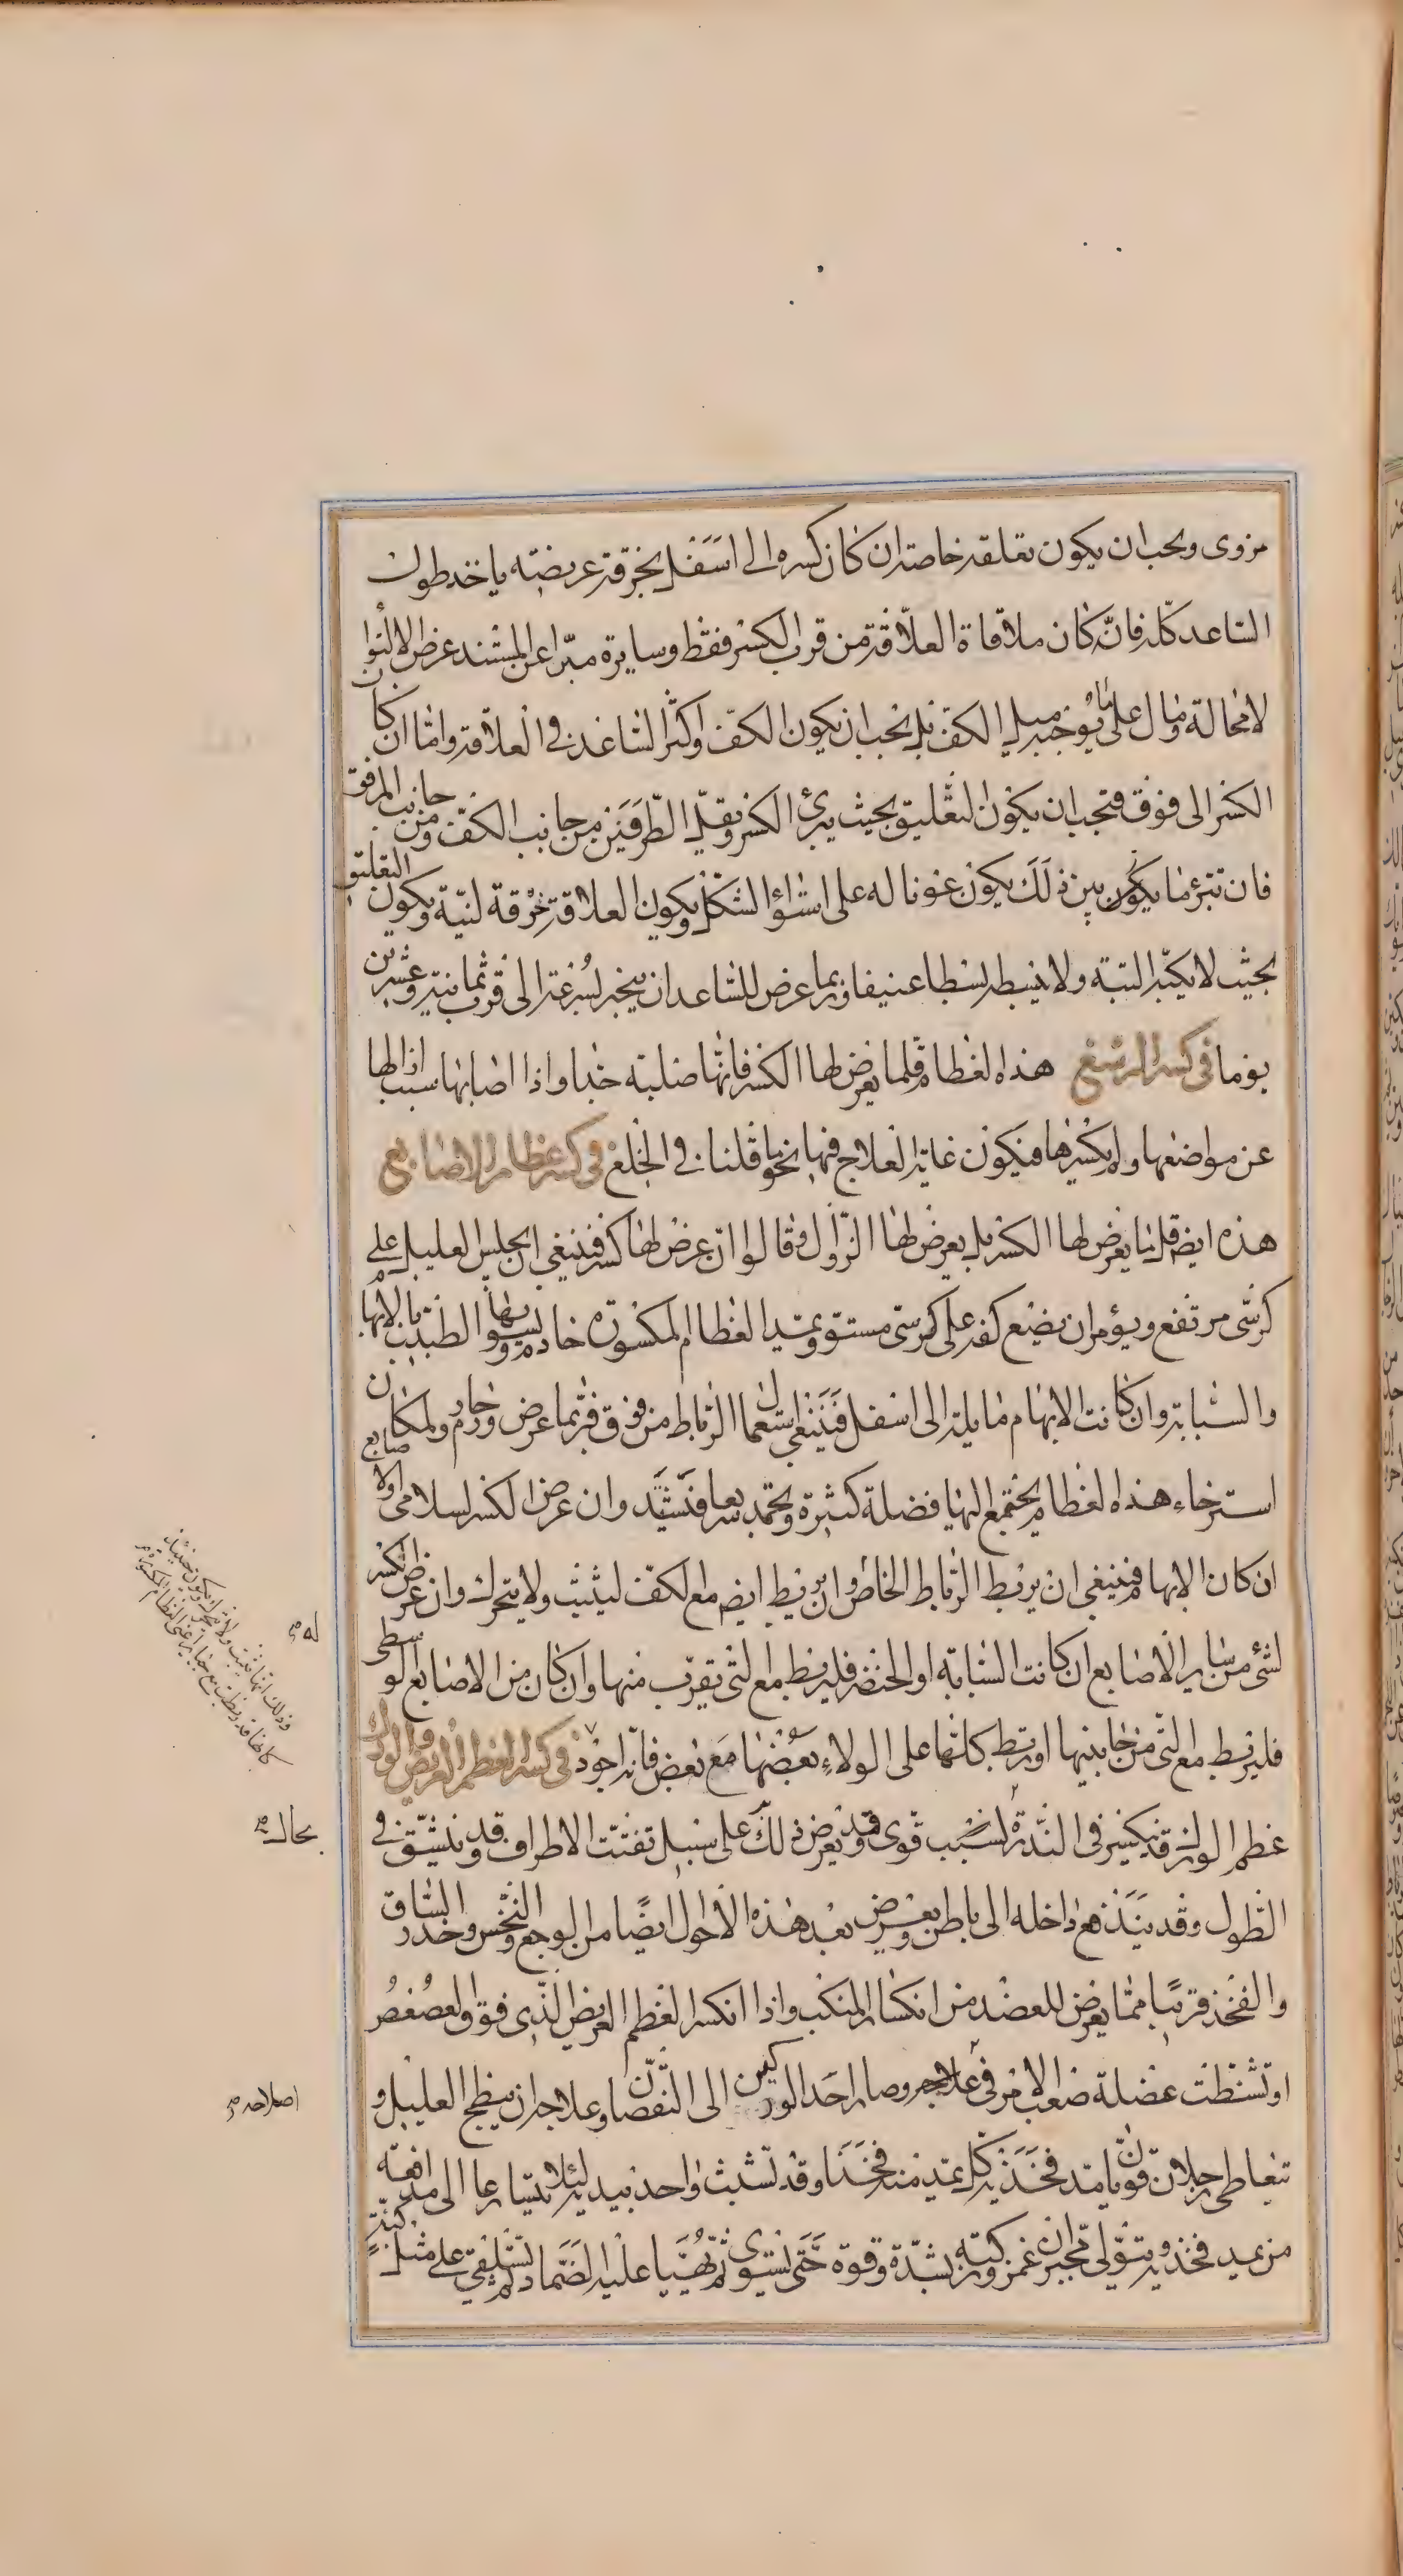 مزوى ويجب ان يكون تعلقه خاصة ان كان كسره الى اسفل بخرقة عريضة ياخذ طول
الساعد كله فانّه كان ملاقاة العلاّقة من قرب الكسر فقط وسايره مبرّا عن المسند عرض الالتوا
لا محالة ومال على ما يوجبه ميل الكفّ بل يجب ان يكون الكفّ واكثر الساعد في العلاّقة وامّا ان كان
الكسر الى فوق فيجب ان يكون التعليق بحيث يبرئ الكسر ويقلّ الطّرفين من جانب الكفّ ومن جانب المرفق
فان تبرئ ما يكون بين ذلك يكون عونا له على استواء الشكل ويكون العلاقة خرقة لنية ويكون التعليق
بحيث لا يكبّ البتة ولا يبسط بسطا عنيفا وربما عرض للساعد ان ينجبر بسرعة الى قرب ثمانية وعشرين
يوما في كسر الرسغ هذه العظام قلما يعرض لها الكسر فانّها صلبة جدا واذا اصابها سبب ازالها
عن مواضعها ولم يكسرها فيكون غاية العلاج فيها نحو ما قلنا في الخلع في كسر عظام الاصابع
هذه ايضا قل ما يعرض لها الكسر بل يعرض لها الزّوال وقالوا ان عرض لها كسر فينبغي ان يجلس العليل على
كرسّي مرتفع ويؤمر ان يضع كفه على كرسّي مستو ويمد العظام المكسورة خادم ويسويها الطبيب بالابهام
والسبابة وان كانت الابهام مايلة الى اسفل فينبغي استعمال الرباط من فوق فربّما عرض ورم حار ولمكان
استرخاء هذه العظام يجتمع اليها فضلة كثيرة ويجمد سريعا فيشتد وان عرض الكسر لسلامى اولا صابع
ان كان الابهام فينبغي ان يربط الرباط الخاص وان يربط ايضا مع الكفّ ليثبت ولا يتحرك وان عرض كسر
لشئ من ساير الاصابع ان كانت السبابة او الخنصر فليربط مع التى تقرب منها وان كان من الاصابع الوسطى
فليربط مع التى من جانبيها او يربط كلها على الولاء بعضها مع بعض فانّه اجود في كسر العظم العريض والورك
عظم الورك قد ينكسر في الندرة لسبب قوى وقد يعرض ذلك على سبيل تفتّت الاطراف وقد ينشقّ في
الطول وقد يندفع داخله الى باطن ويعرض بعد هذه الاحوال ايضًا من الوجع والنخس وخدر الساق
والفخذ قريبًا ممّا يعرض للعضد من انكسار المنكب واذا انكسر العظم العريض الّذى فوق العصعص
او تشظت عضلة صعب الامر في علاجه وصار احد الوركين الى النّقصان وعلاجه ان يبطح العليل و
يتعاطى رجلان قويّان مد فخذيه كل يمد منه فخذا وقد تشبث واحد بيديه لئلا يتسارعا الى مدافعة
من يمد فخذيه ويتولّى مجبران غمز وركيه بشدّة وقوة حتّى يستوى ثم يهيّا عليه الضماد ثم يستلقى على مثل كبّة
له صح
بحاله صح
اصلاحه صح